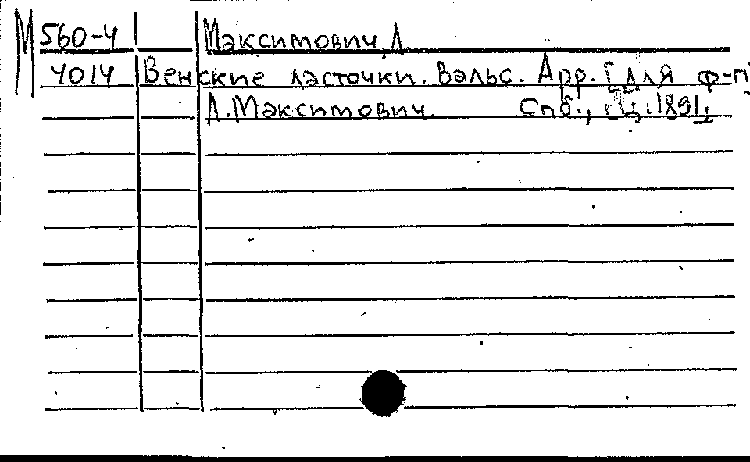 М 560-4 Максимович Л
4014 Венские ласточки. Вальс. Арр. [для ф-п
Л. Максимович. Спб., Ц. 1891.